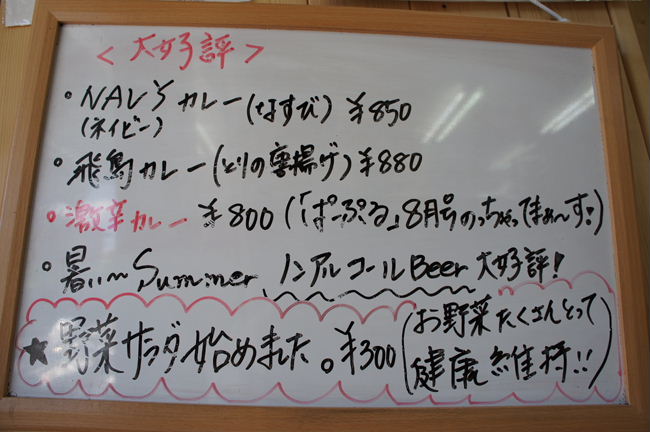 <大好評>
・NAVYカレー(なすび) ¥850
(ネイビー)
・飛鳥カレー(とりの唐揚げ)¥880
・激辛カレー ¥800(「ぱーぷる」8月号のっちゃってまぁ〜す!)
・暑い〜Summer、ノンアルコールBeer 大好評!
★野菜サラダ始めました。¥300(お野菜たくさんとって
健康維持!!)